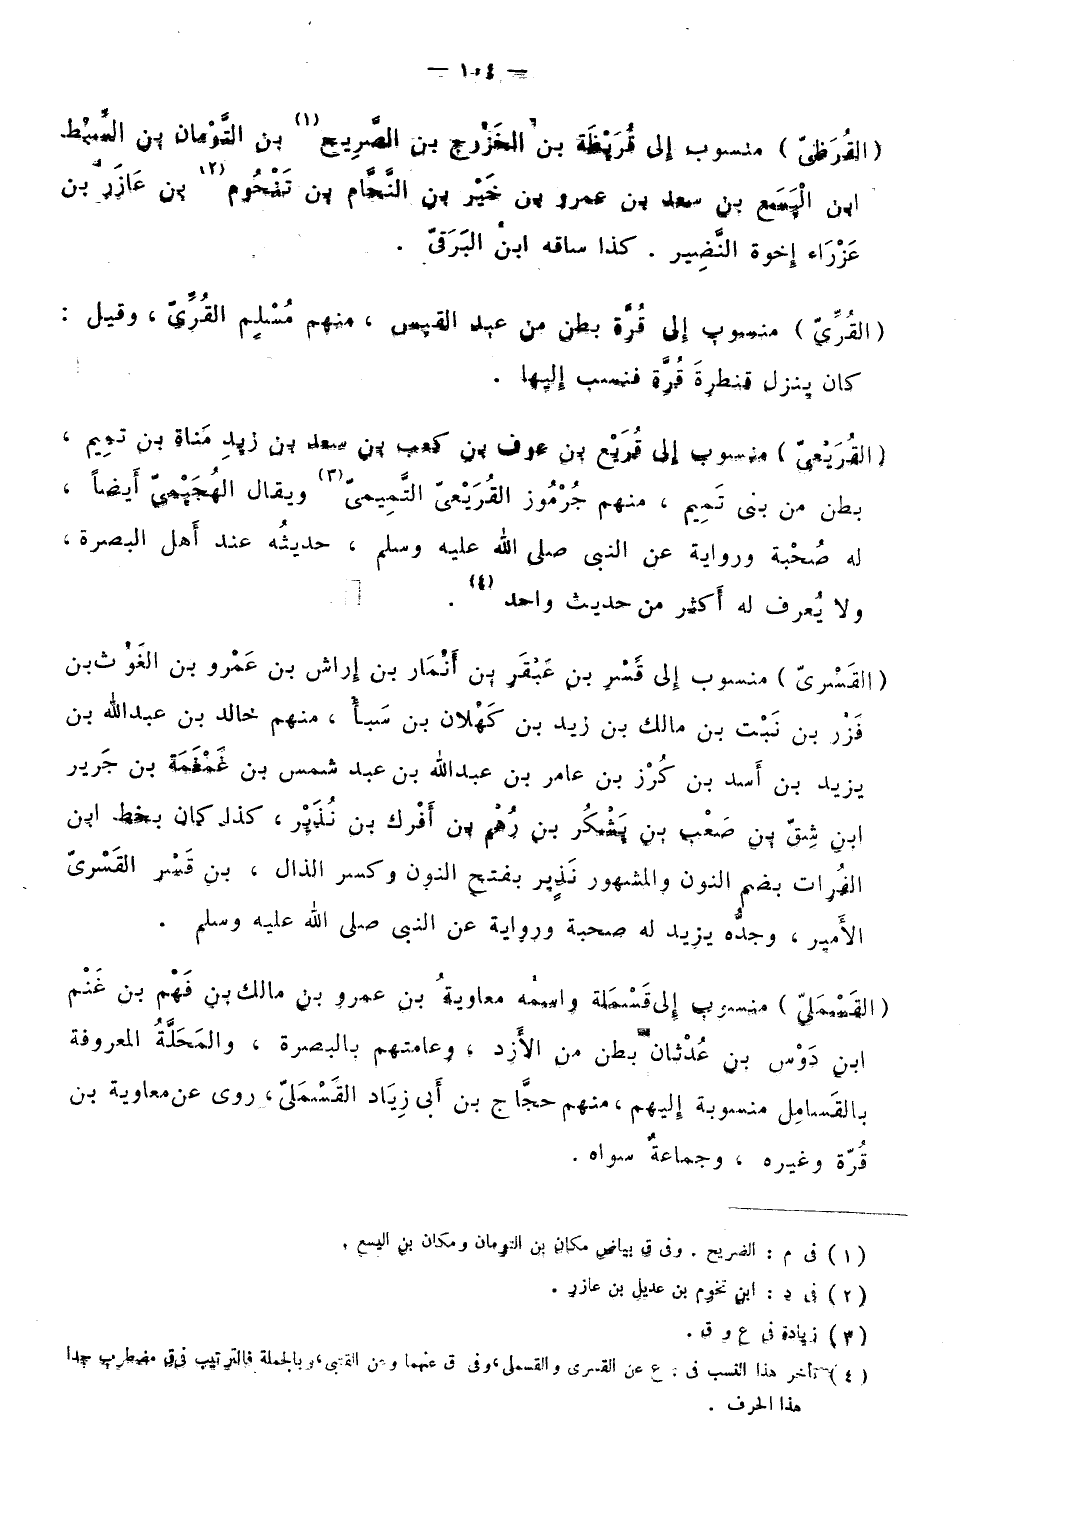 — ١٠٤ —
( القُرَظىّ ) منسوب إلى قُرَيْظَة بن الخَزْرج بن الصَّريح (١) بن التَّوْمان بن السِّبْط
ابن الْيَسَع بن سعد بن عمرو بن خَيْر بن النَّحَّام بن تَنْحُوم (٢) بن عَازَر بن
عَزْرَاء إخوة النَّضِير . كذا ساقه ابن البَرَقىّ .
( القُرِّىّ ) منسوب إلى قُرَّة بطن من عبد القيس ، منهم مُسْلِم القُرِّىّ ، وقيل :
كان ينزل قنطرةَ قُرَّة فنسب إليها .
( القُرَيْعىّ ) منسوب إلى قُرَيْع بن عوف بن كعب بن سعد بن زيدِ مَناة بن تميم ،
بطن من بنى تَمِيم ، منهم جُرْمُوز القُرَيْعىّ التَّمِيمىّ (٣) ويقال الهُجَيْمىّ أَيضاً ،
له صُحْبة ورواية عن النبى صلى الله عليه وسلم ، حديثُه عند أَهل البصرة ،
ولا يُعرف له أَكثر من حديث واحد (٤) .
( القَسْرىّ ) منسوب إلى قَسْرِ بن عَبْقَرِ بن أَنْمَار بن إراش بن عَمْرو بن الغَوْث بن
فَزْر بن نَبْت بن مالك بن زيد بن كَهْلان بن سَبأْ ، منهم خالد بن عبدالله بن
يزيد بن أَسد بن كُرْز بن عامر بن عبدالله بن عبد شمس بن غَمْغَمَة بن جَرير
ابنِ شِقّ بن صَعْب بن يَشْكُر بن رُهْم بن أَفْرك بن نُذَيْر ، كذا كان بخط ابن
الفُرات بضم النون والمشهور نَذِير بفتح النون وكسر الذال ، بن قَسْر القَسْرىّ
الأَمير ، وجدُّه يزيد له صحبة ورواية عن النبى صلى الله عليه وسلم .
( القَسْمَلىّ ) منسوب إلى قَسْمَلة واسمُه معاويةُ بن عمرو بن مالك بن فَهْم بن غَنْم
ابن دَوْس بن عُدْثان بطن من الأَزد ، وعامتهم بالبصرة ، والمَحَلَّةُ المعروفة
بالقَسامل منسوبة إليهم ، منهم حجَّاج بن أَبى زِيَاد القَسْمَلىّ ، روى عن معاوية بن
قُرّة وغيره ، وجماعةٌ سواه .
( ١ ) فى م : الضريح . وفى ق بياض مكان بن التومان ومكان بن اليسع .
( ٢ ) فى د : ابن نخوم بن عديل بن عازر .
( ٣ ) زيادة فى ع و ق .
( ٤ ) تأخر هذا النسب فى ع عن القسرى والقسملى ، وفى ق عنهما وعن القتبى ، وبالجملة فالترتيب فى ق مضطرب جدا
هذا الحرف .